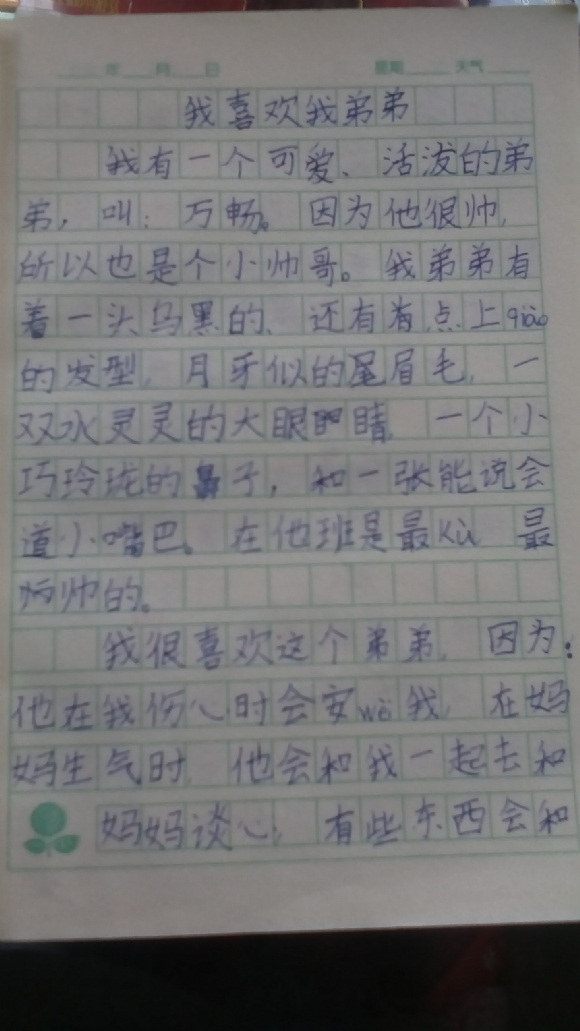 年 月 日 星期 天气
我喜欢我弟弟
我有一个可爱、活泼的弟
弟，叫：万畅。因为他很帅，
所以也是个小帅哥。我弟弟有
着一头乌黑的、还有有点上qiào
的发型，月牙似的眉毛，一
双水灵灵的大眼睛，一个小
巧玲珑的鼻子，和一张能说会
道小嘴巴。在他班是最Kù 最
帅的。
我很喜欢这个弟弟，因为：
他在我伤心时会安wèi我，在妈
妈生气时，他会和我一起去和
妈妈谈心，有些东西会和